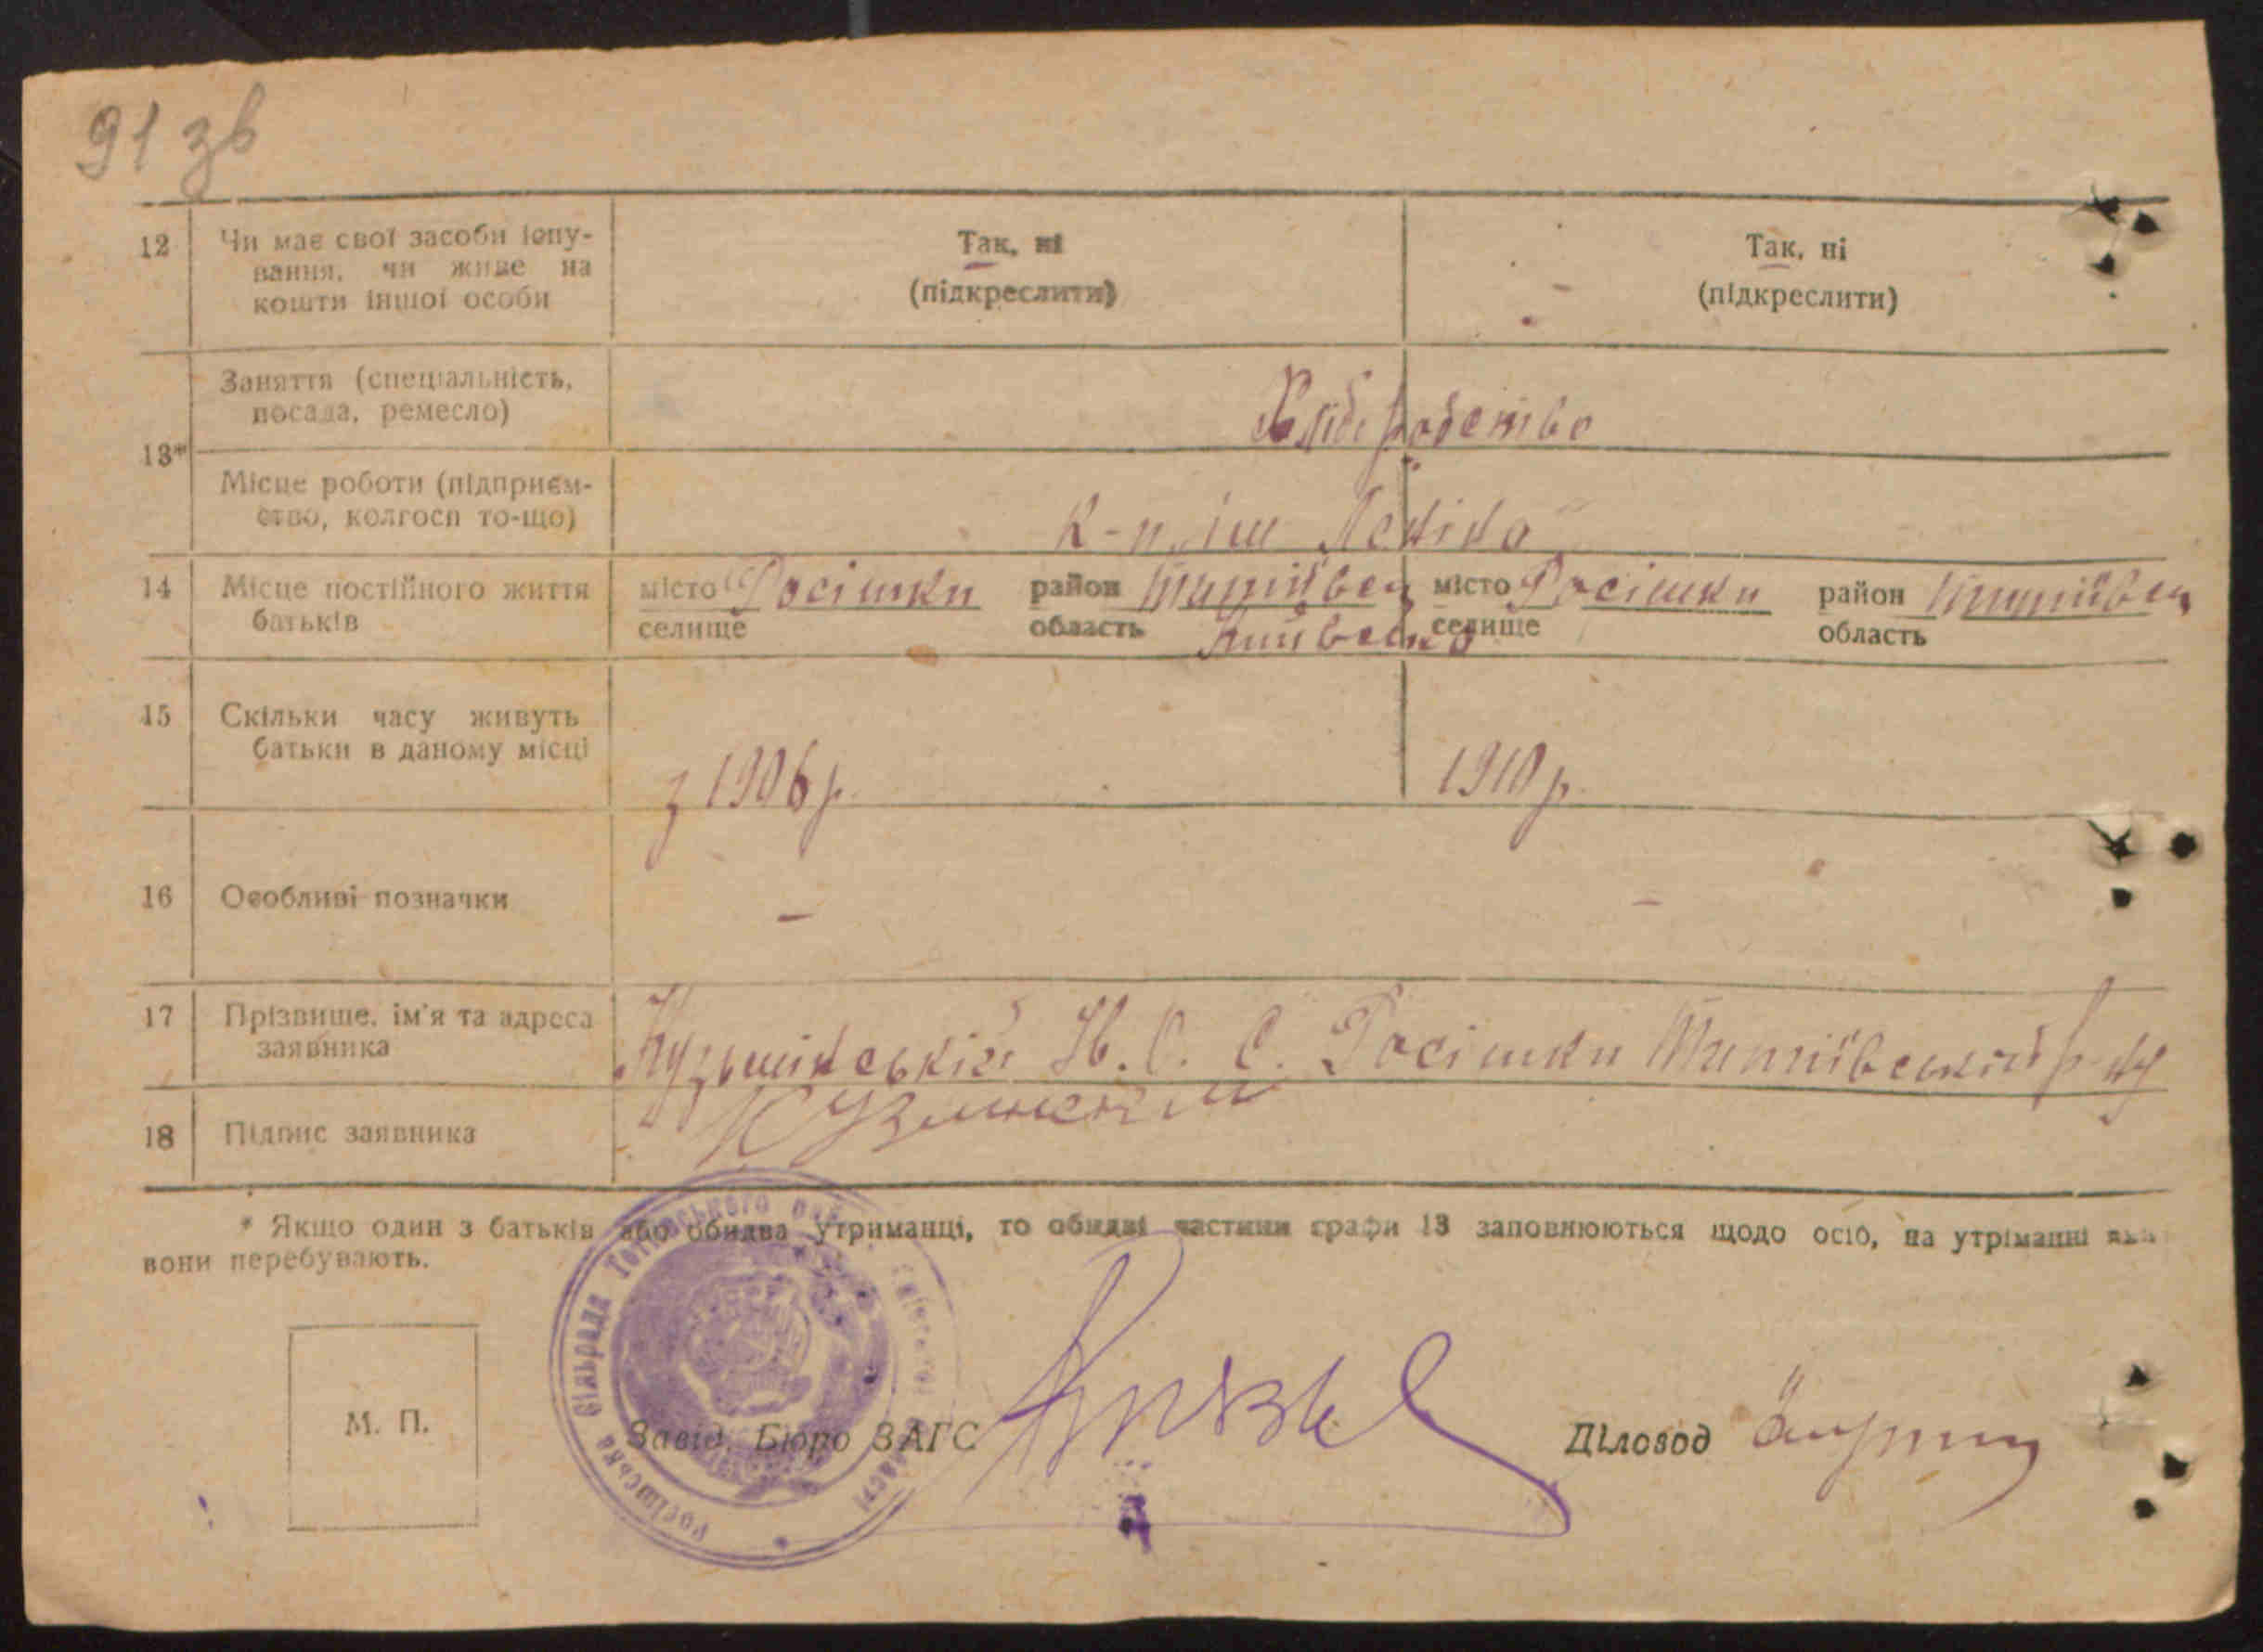 91 зв
12 Чи має свої засоби існу-
вання, чи живе на
кошти іншої особи
Так, ні
(підкреслити)
Так, ні
(підкреслити)
13*
Заняття (спеціальність,
посада, ремесло)
Хліборобство
Місце роботи (підприєм-
ство, колгосп то-що)
к-п. ім Леніна
14 Місце постійного життя
батьків
місто Росішки район Титиївськ
селище область Київська
місто Росішки район Титиївськ
селище область
15 Скільки часу живуть
батьки в даному місці
з 1906 р.
1910 р.
16 Особливі позначки
–
–
17 Прізвище, ім'я та адреса
заявника
Кузьмінській Н. С. С. Росішки Титиївський р-ну
18 Підпис заявника
* Якщо один з батьків або обидва утриманці, то обидві частини графи 13 заповнюються щодо осіб, на утріманні яких
вони перебувають.
М. П.
Росішська сільрада
області
Завід. Бюро ЗАГС
Діловод